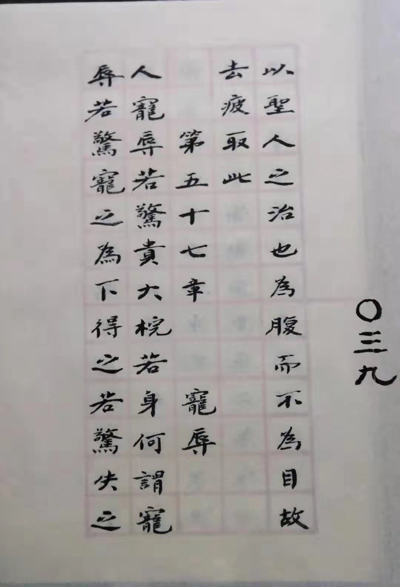 以聖人之治也為腹而不為目故
去疲取此
第五十七章 寵辱
人寵辱若驚貴大梡若身何謂寵
辱若驚寵之為下得之若驚失之
〇三九